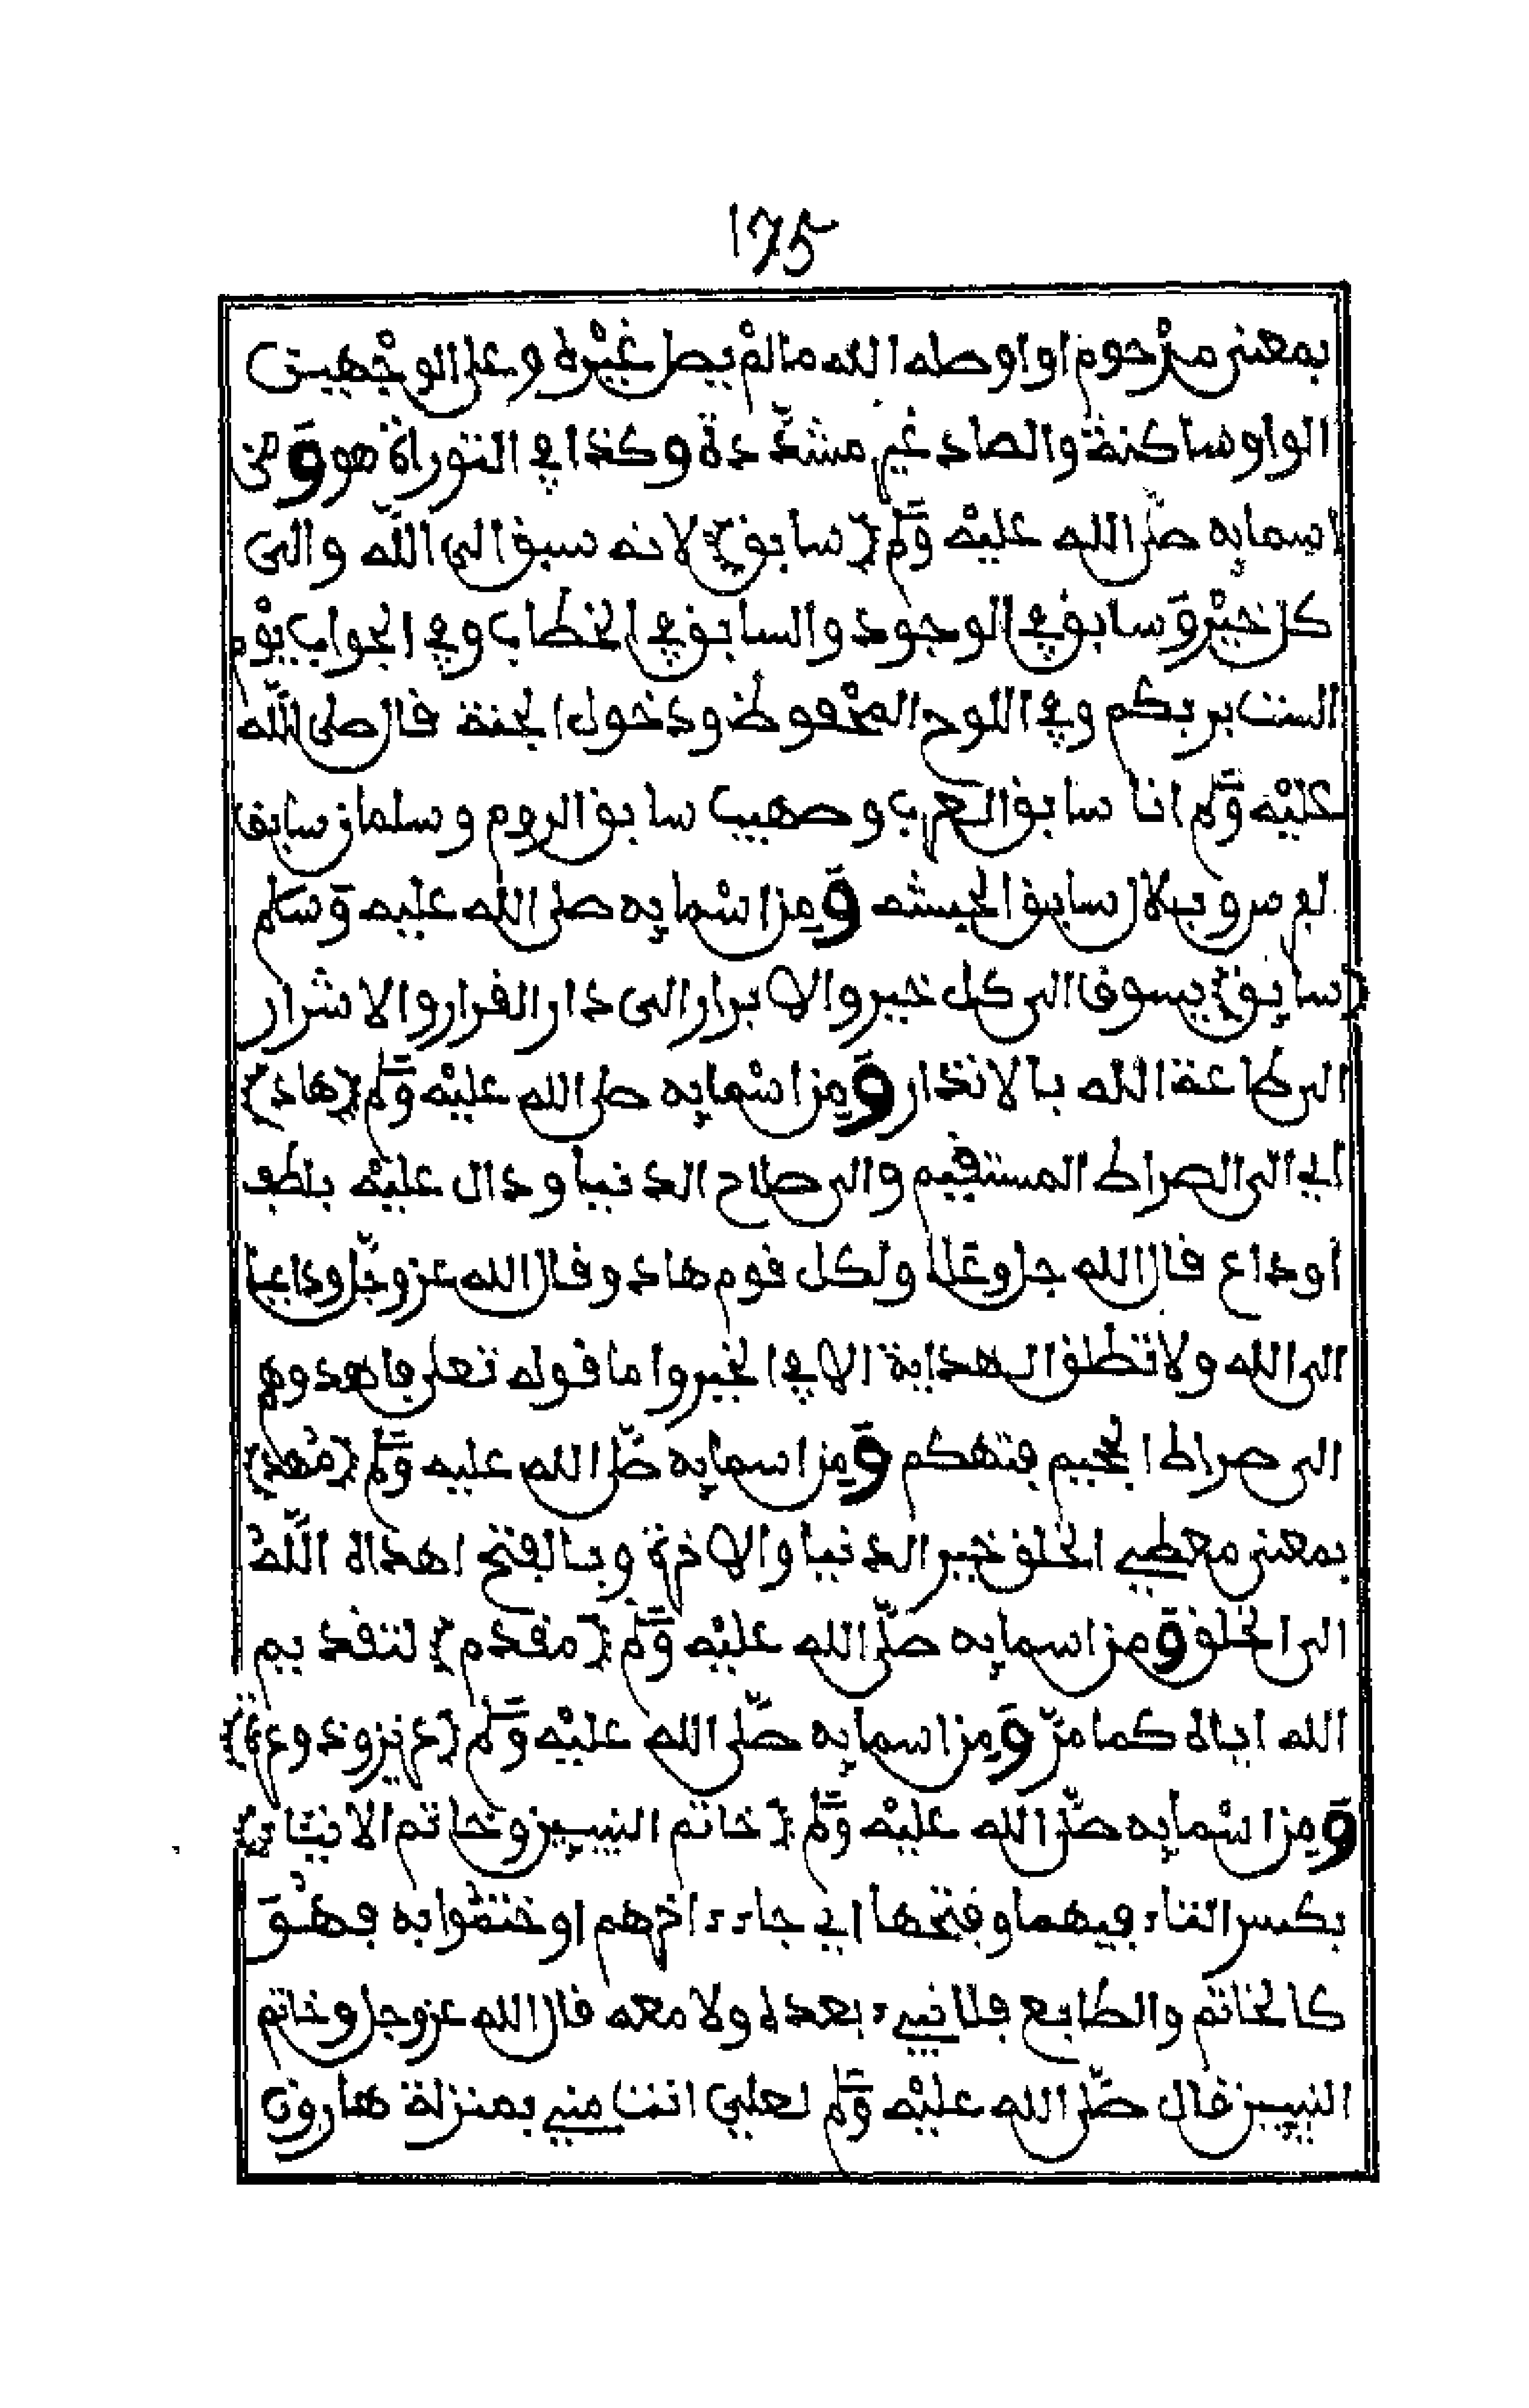 175
بمعنى مرحوم او اوصله الله ما لم يصل غيره وعلى الوجهين
الواو ساكنة والصاد غير مشددة وكذا في التوراة هو ومن
اسمايه صلى الله عليه وسلم {سابق} لانه سبق الى الله والى
كل خير وسابق في الوجود والسابق في الخطاب وفي الجواب يوم
الست بربكم وفي اللوح المحفوظ ودخول الجنة قال صلى الله
عليه وسلم انا سابق العرب وصهيب سابق الروم وسلمان سابق
وبلال سابق الحبشه ومن اسمايه صلى الله عليه وسلم
{سايق} يسوق الى كل خير والابرار الى دار القرار والاشرار
الى طاعة الله بالانذار ومن اسمايه صلى الله عليه وسلم {هاد}
اي الى الصراط المستقيم والى صلاح الدنيا ودال عليه بلطف
او داع قال الله جل وعلا ولكل قوم هاد وقال الله عز وجل وداعيا
الى الله ولا تطلق الهداية الا في الخير واما قوله تعلى فاهدوهم
الى صراط الجحيم فتهكم ومن اسمايه صلى الله عليه وسلم {مهد}
بمعنى معطي الخلق خير الدنيا والاخرة وبالفتح اهداه الله
الى الخلق ومن اسمايه صلى الله عليه وسلم {مقدم} لتقديم
الله اياه كما مر ومن اسمايه صلى الله عليه وسلم {عزيز وذو عزة}
ومن اسمايه صلى الله عليه وسلم {خاتم النبيين وخاتم الانبياء}
بكسر التاء فيهما وفتحها اي جاء ءاخرهم او ختموا به فهو
كالخاتم والطابع فلا نبيء بعده ولا معه قال الله عز وجل وخاتم
النبيين قال صلى الله عليه وسلم لعلي انت مني بمنزلة هارون